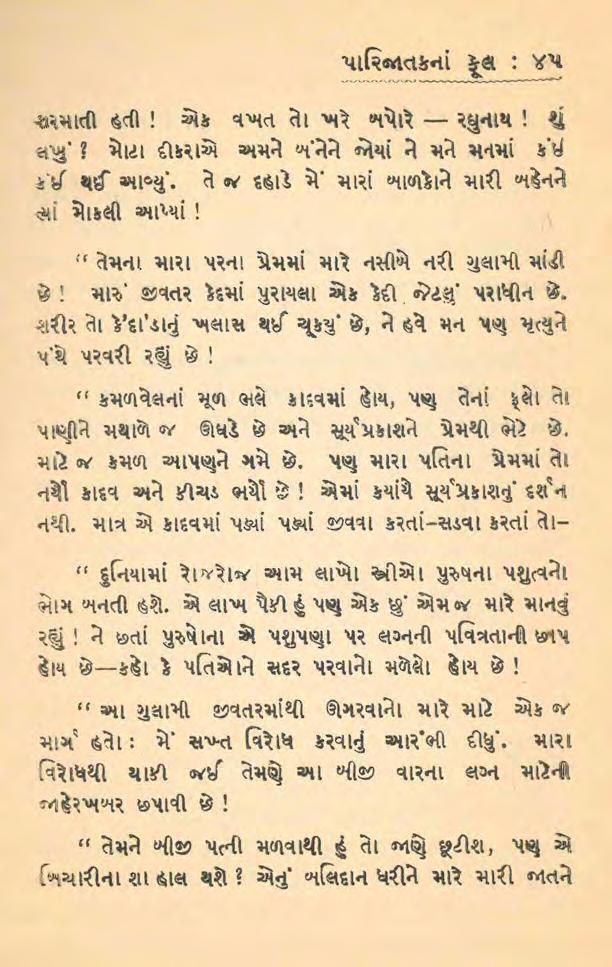 પારિજાતકનાં ફૂલ : ૪૫
શરમાતી હતી ! એક વખત તો ખરે બપોરે — રઘુનાથ ! શું
લખું ? મોટા દીકરાએ અમને બંનેને જોયાં ને મને મનમાં કંઈ
કંઈ થઈ આવ્યું. તે જ દહાડે મેં મારાં બાળકોને મારી બહેનને
ત્યાં મોકલી આપ્યાં !
“ તેમના મારા પરના પ્રેમમાં મારે નસીબે નરી ગુલામી માંડી
છે ! મારું જીવતર કેદમાં પુરાયલા એક કેદી જેટલું પરાધીન છે.
શરીર તો કે’દા’ડાનું ખલાસ થઈ ચૂક્યું છે, ને હવે મન પણ મૃત્યુને
પંથે પરવરી રહ્યું છે !
“ કમળવેલનાં મૂળ ભલે કાદવમાં હોય, પણ તેનાં ફૂલો તો
પાણીને મથાળે જ ઊઘડે છે અને સૂર્યપ્રકાશને પ્રેમથી ભેટે છે.
માટે જ કમળ આપણને ગમે છે. પણ મારા પતિના પ્રેમમાં તો
નર્યો કાદવ અને કીચડ ભર્યો છે ! એમાં ક્યાંયે સૂર્યપ્રકાશનું દર્શન
નથી. માત્ર એ કાદવમાં પડ્યાં પડ્યાં જીવવા કરતાં–સડવા કરતાં તો–
“ દુનિયામાં રોજરોજ આમ લાખો સ્ત્રીઓ પુરુષના પશુત્વનો
ભોગ બનતી હશે. એ લાખ પૈકી હું પણ એક છું એમ જ મારે માનવું
રહ્યું ! ને છતાં પુરુષોના એ પશુપણા પર લગ્નની પવિત્રતાની છાપ
હોય છે—કહો કે પતિઓને સદર પરવાનો મળેલો હોય છે !
“ આ ગુલામી જીવતરમાંથી ઊગરવાનો મારે માટે એક જ
માર્ગ હતો : મેં સખ્ત વિરોધ કરવાનું આરંભી દીધું. મારા
વિરોધથી થાકી જઈ તેમણે આ બીજી વારના લગ્ન માટેની
જાહેરખબર છપાવી છે !
“ તેમને બીજી પત્ની મળવાથી હું તો જાણે છૂટીશ, પણ એ
બિચારીના શા હાલ થશે ? એનું બલિદાન ધરીને મારે મારી જાતને